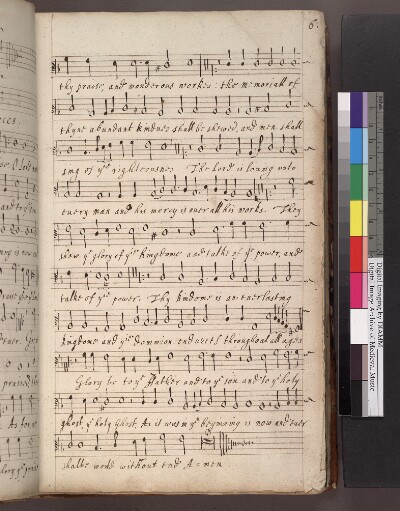 6.
thy praise, and wonderous workes: the memoriall of
thyne abundant kindnes shall be shewed, and men shall
sing of yr righteousnes The Lord is loving unto
euery man and his mercy is ouer all his works. They
shew ye glory of yr kingdome and talke of yr power, and
talke of yr power. Thy kindome is an euerlasting
kingdome and yr Dominion endureth throughout all ages
Glory be to ye Father and to ye son and to ye holy
ghost, ye holy ghost, As it was in ye beginning is now and euer
shalbe world without end A=men
Digital Imaging by DIAMM
Digital Image Archive of Medieval Music